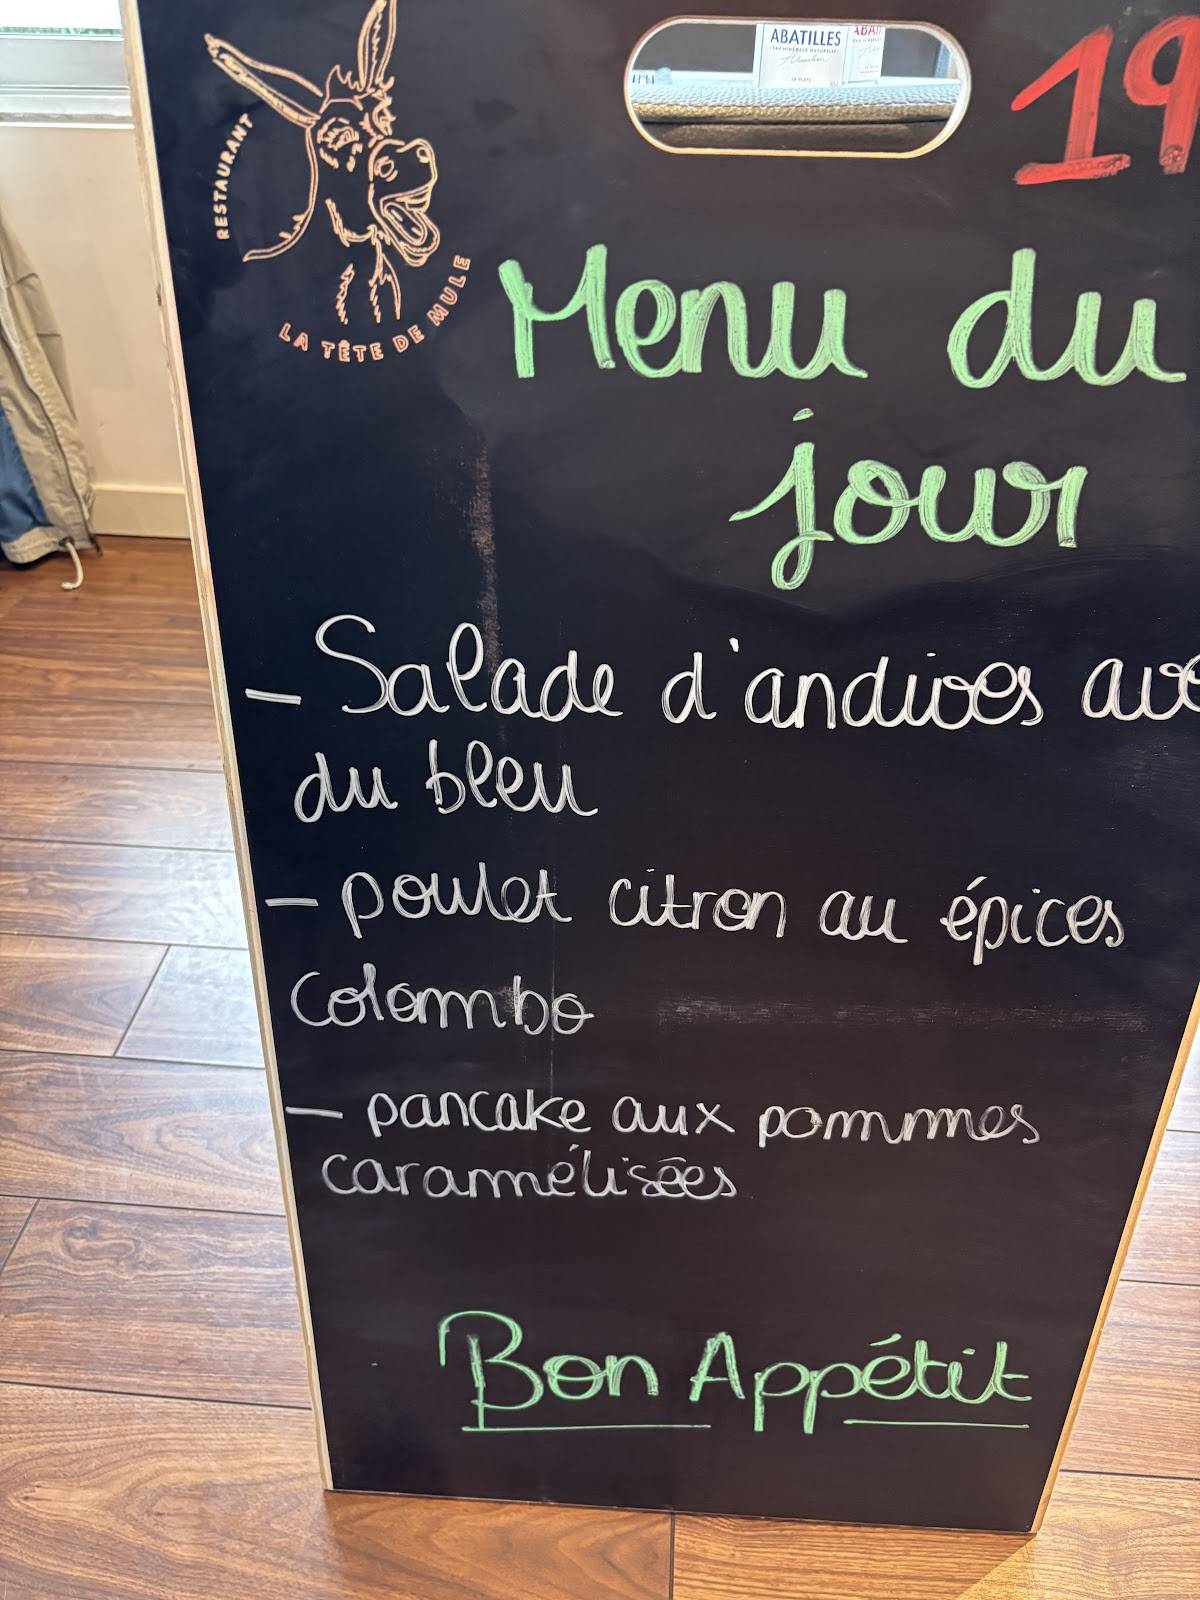 ABATILLES
EAU MINÉRALE NATURELLE
19
RESTAURANT
LA TÊTE DE MULE
Menu du
jour
- Salade d'andives ave
du bleu
- poulet citron au épices
Colombo
- pancake aux pommes
caramélisées
Bon Appétit